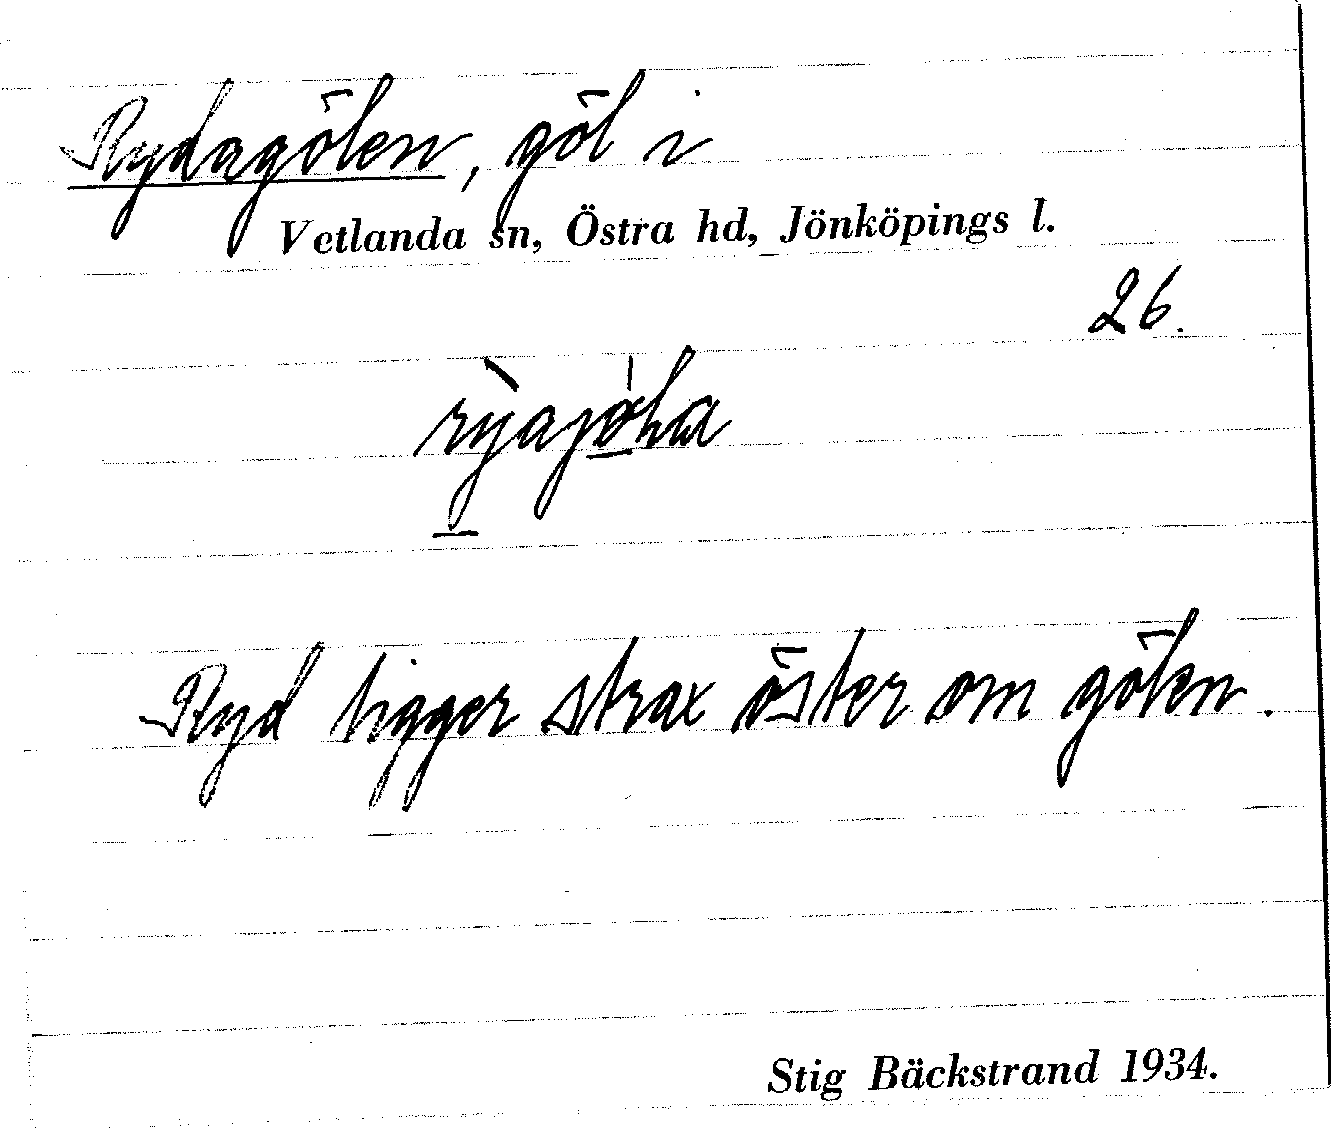 Rydagölen, göl i
Vetlanda sn, Östra hd, Jönköpings l.
26.
Ryd ligger strax öster om gölen.
Stig Bäckstrand 1934.